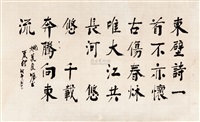 東壁詩一
首不亦懷
古傷春秋
唯大江共
長河悠
悠千載
奔騰向東
流